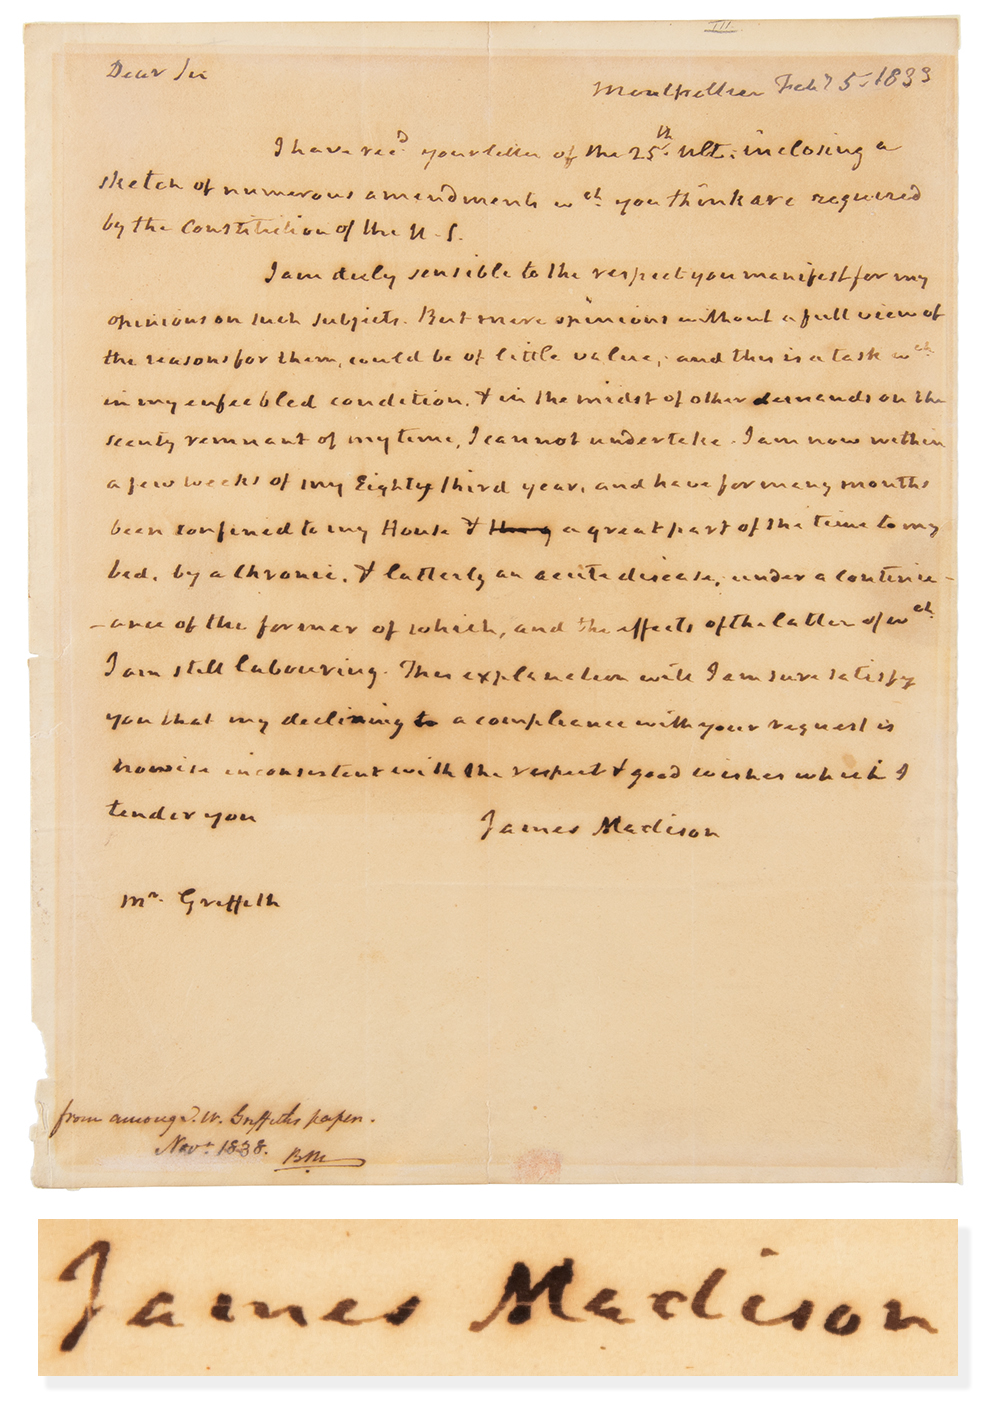 III
Dear Sir
Montpellier Feby 5. 1833
I have recd. your letter of the 25th. Ult: inclosing a
sketch of numerous amendments wch. you think are required
by the Constitution of the U. S.
I am duly sensible to the respect you manifest for my
opinions on such subjects. But mere opinions without a full view of
the reasons for them, could be of little value; and this is a task wch.
in my enfeebled condition, & in the midst of other demands on the
scanty remnant of my time, I cannot undertake. I am now within
a few weeks of my Eighty third year, and have for many months
been confined to my House & a great part of the time to my
bed, by a Chronic, & latterly an acute disease, under a continu-
-ance of the former of which, and the effects of the latter of wch.
I am still labouring. This explanation will I am sure satisfy
you that my declining a compliance with your request is
nowise inconsistent with the respect & good wishes which I
tender you
James Madison
Mr. Griffith
from among W. Griffiths papers.
Novr. 1838. BM
James Madison